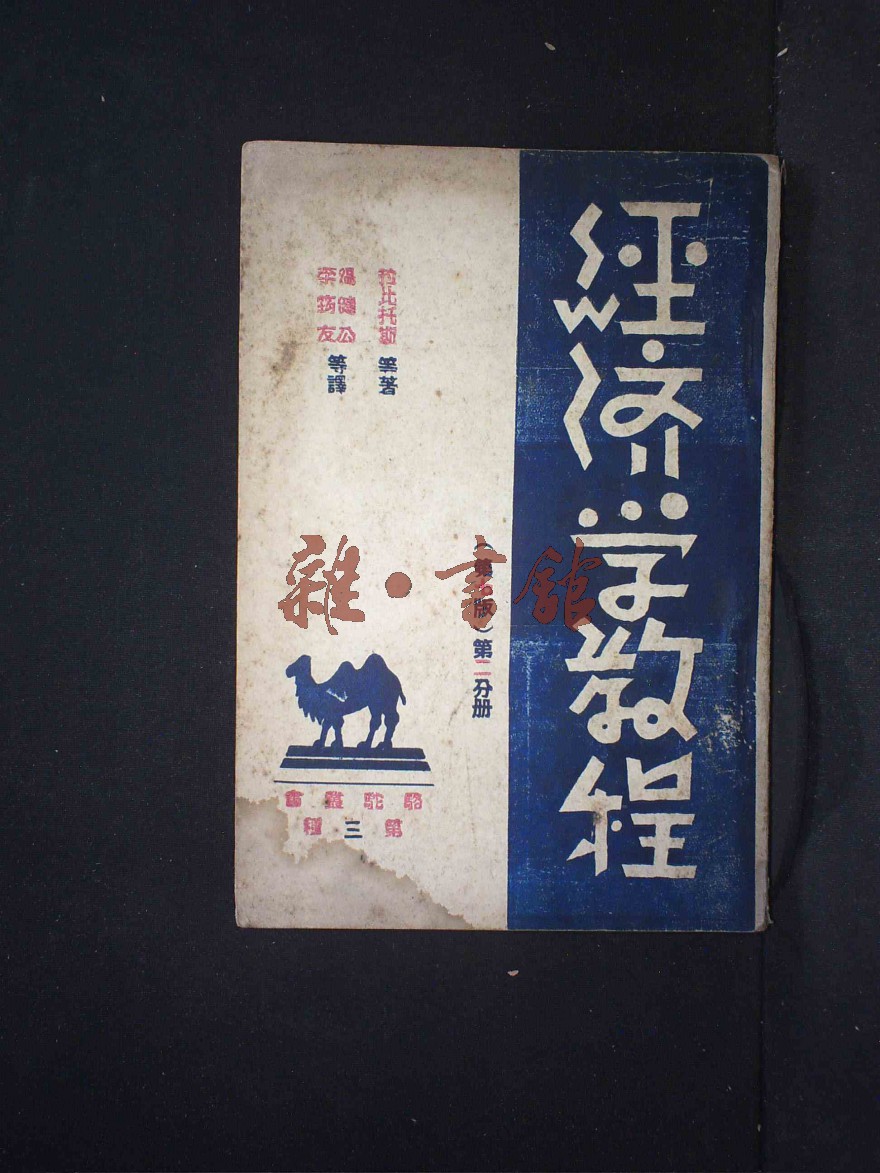 經济学教程
(第版)第二分册
拉比托斯 等著
溫健公
李筠友
等譯
駱駝叢書
第三種
雜·書館